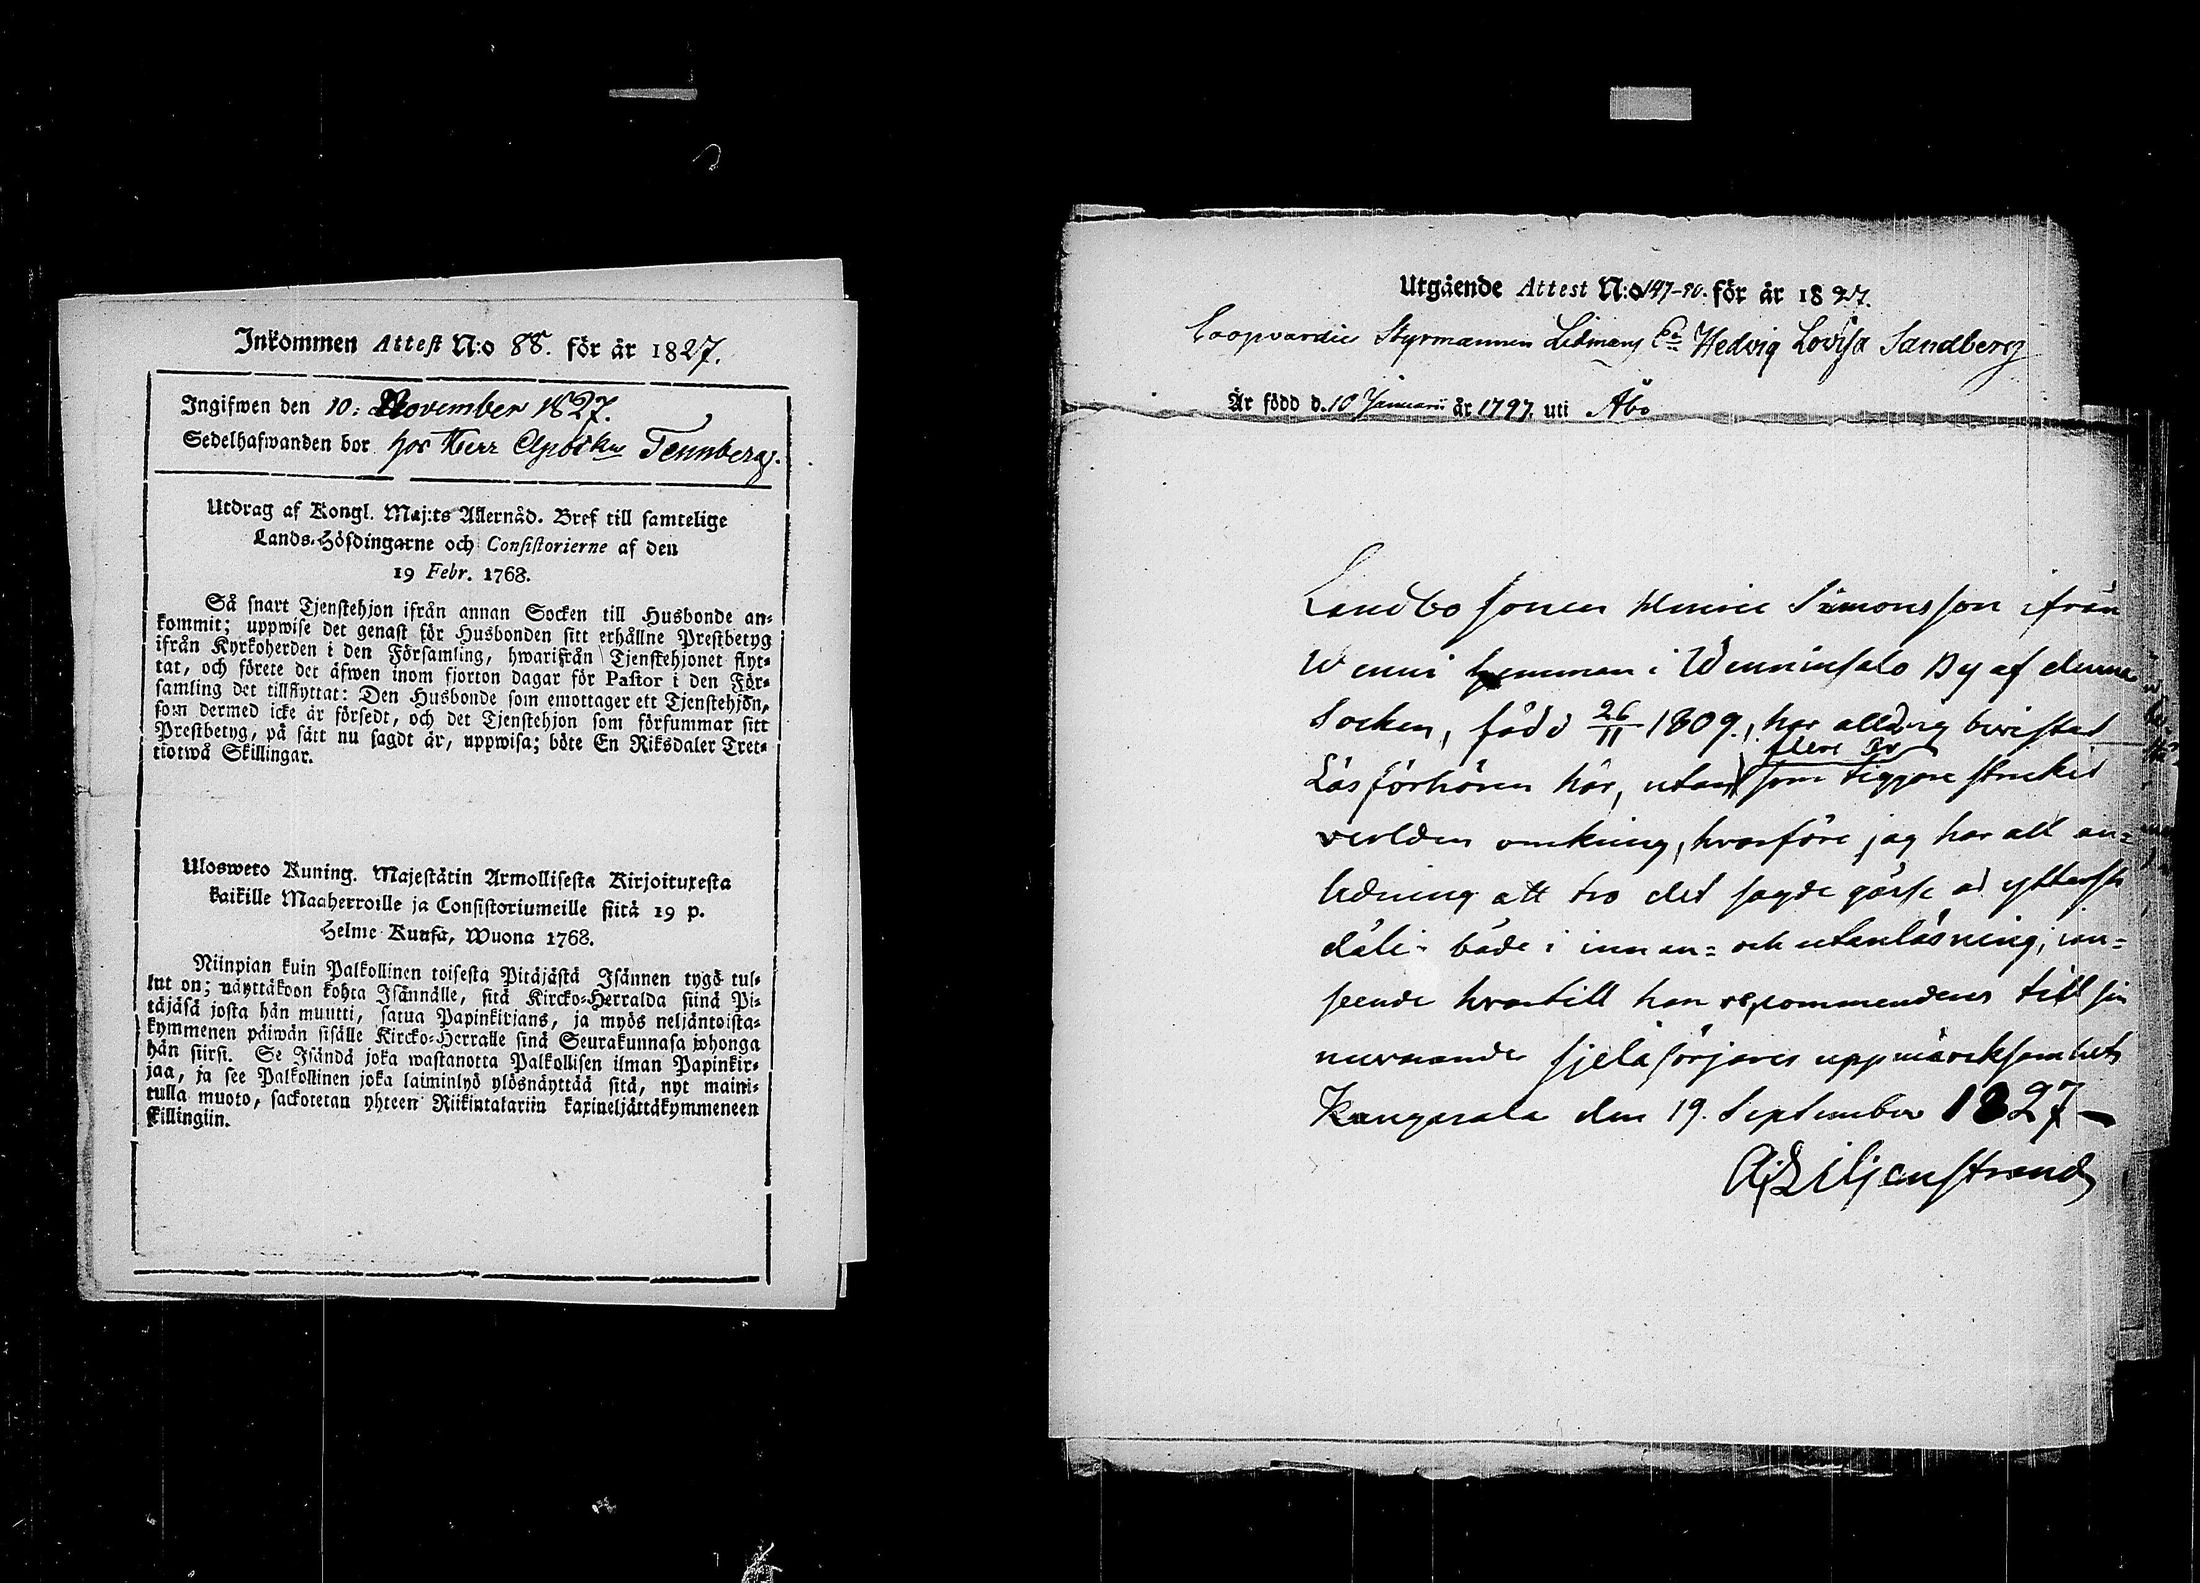 Inkommen Attest N:o 88. för år 1827.
Ingifwen den 10: November 1827.
Sedelhafwanden bor hos Herr Apothek Tennberg.
Utdrag af Kongl. Maj:ts Allernåd. Bref till samtelige
Lands-Höfdingarne och Consistorierne af den
19 Febr. 1768.
Så snart Tjenstehjon ifrån annan Socken till Husbonde an-
kommit; uppwise det genast för Husbonden sitt erhållne Prestbetyg
ifrån Kyrkoherden i den Församling, hwarifrån Tjenstehjonet flyt-
tat, och förete det äfwen inom fjorton dagar för Pastor i den För-
samling det tillflyttat: Den Husbonde som emottager ett Tjenstehjon,
som dermed icke är försedt, och det Tjenstehjon som försummar sitt
Prestbetyg, på sätt nu sagdt är, uppwisa; böte En Riksdaler Tret-
tiotwå Skillingar.
Ulosweto Kuning. Majestätin Armollisesta Kirjoituxesta
kaikille Maaherroille ja Consistoriumeille siitä 19 p.
Helme-Kuusa, Wuona 1768.
Niinpian kuin Palkollinen toisesta Pitäjästä Isännen tygö tul-
lut on; näyttäköon kohta Isännälle, sitä Kircko-Herralda siinä Pi-
täjäsä josta hän muutti, saatua Papinkirjans, ja myös neljäntoista-
kymmenen päiwän sisälle Kircko-Herralle sinä Seurakunnasa johonga
hän siirsi. Se Isändä joka wastanotta Palkollisen ilman Papinkir-
jaa, ja see Palkollinen joka laiminlyö ylösnäyttää sitä, nyt maini-
tulla muoto, sackotetan yhteen Riikintalariin kaxineljättäkymmeneen
skillingiin.
Utgående Attest N:o 147-90. för år 1827.
Coopvardie Styrmannen Lidmans Hedvig Lovisa Sandberg
Är född d. 10 Januarii år 1797. uti Åbo
Landbo sonen Henric Simonsson ifrån
Wenni hemman i Wenninsalo By af denna
Socken, född 26/11 1809., har alldrig bevistat
flere år
Läsförhören här, utan som tiggare strukit
verlden omkring, hvarföre jag har all an-
ledning att tro det sagde gosse är ytterst
dålig både i innan- och utanläsning; i an-
seende hvartill han recommenderas till sin
nuvarande själasörjares uppmärksamhet
Kangasala den 19. September 1827
A. J. Liljenstrand